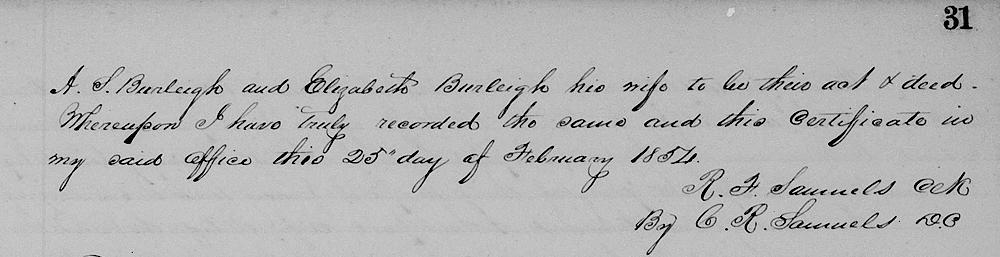 31
A. S. Burleigh and Elizabeth Burleigh his wife to be their act & deed.
Whereupon I have truly recorded the same and this Certificate in
my said office this 25" day of February 1854.
R. F. Samuels Clk
By C. R. Samuels D.C